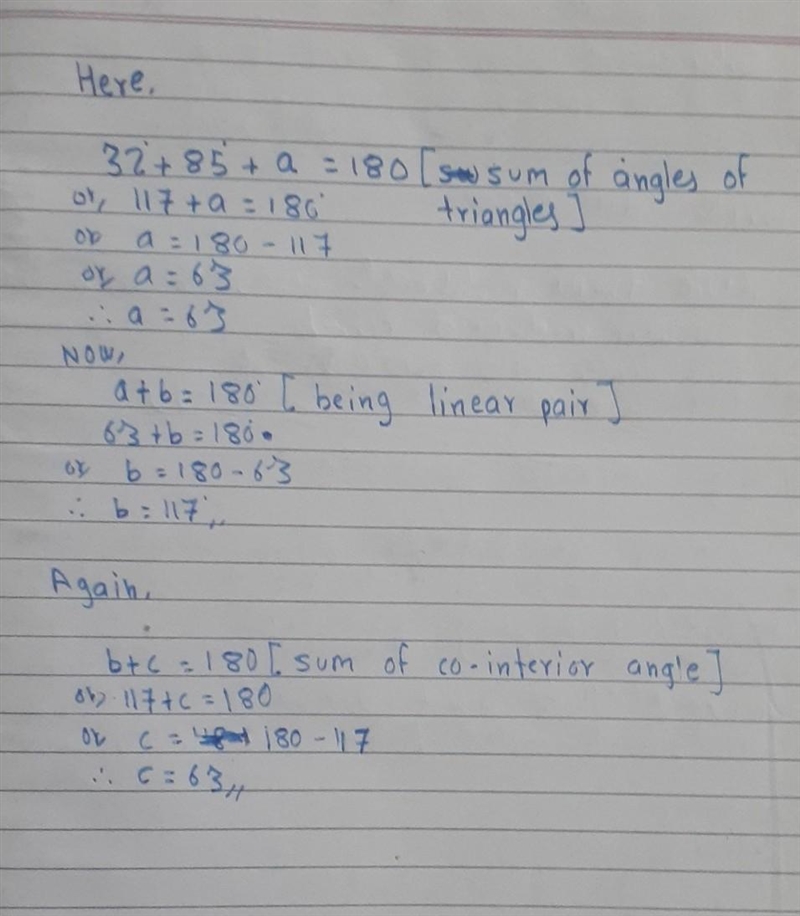 Here,
32° + 85° + a = 180 [sum of angles of
or, 117 + a = 180° triangles]
or a = 180 - 117
or a = 63
∴ a = 63
NOW,
a + b = 180° [being linear pair]
63 + b = 180°
or b = 180 - 63
∴ b = 117°,,
Again,
b + c = 180 [sum of co-interior angle]
or, 117 + c = 180
or c = 180 - 117
∴ c = 63,,